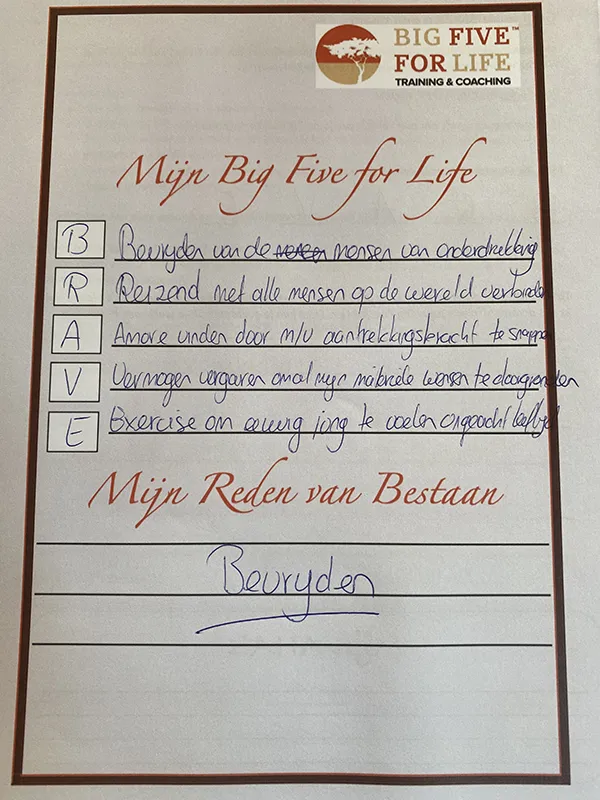 BIG FIVE™
FOR LIFE
TRAINING & COACHING
Mijn Big Five for Life
B Bevryden van de mensen van onderdrukking
R Reizend met alle mensen op de wereld verbinden
A Amore vinden door m/v aantrekkingskracht te snappen
V Vermogen vergaren om al mijn materiële wensen te
E Exercise om eeuwig jong te voelen ongeacht leeftijd
Mijn Reden van Bestaan
Bevryden